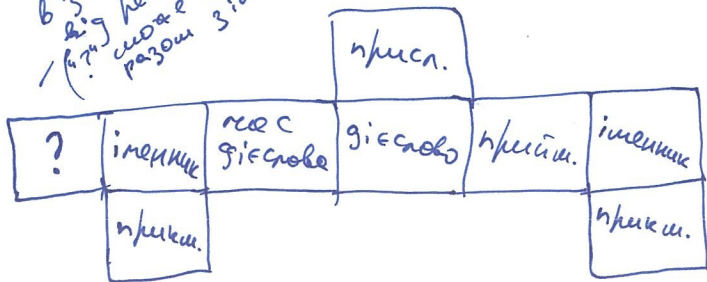 в з
від ре
("?" може
разом з і
присл.
?
іменник
час
дієслова
дієслово
прийм.
іменник
прикм.
прикм.